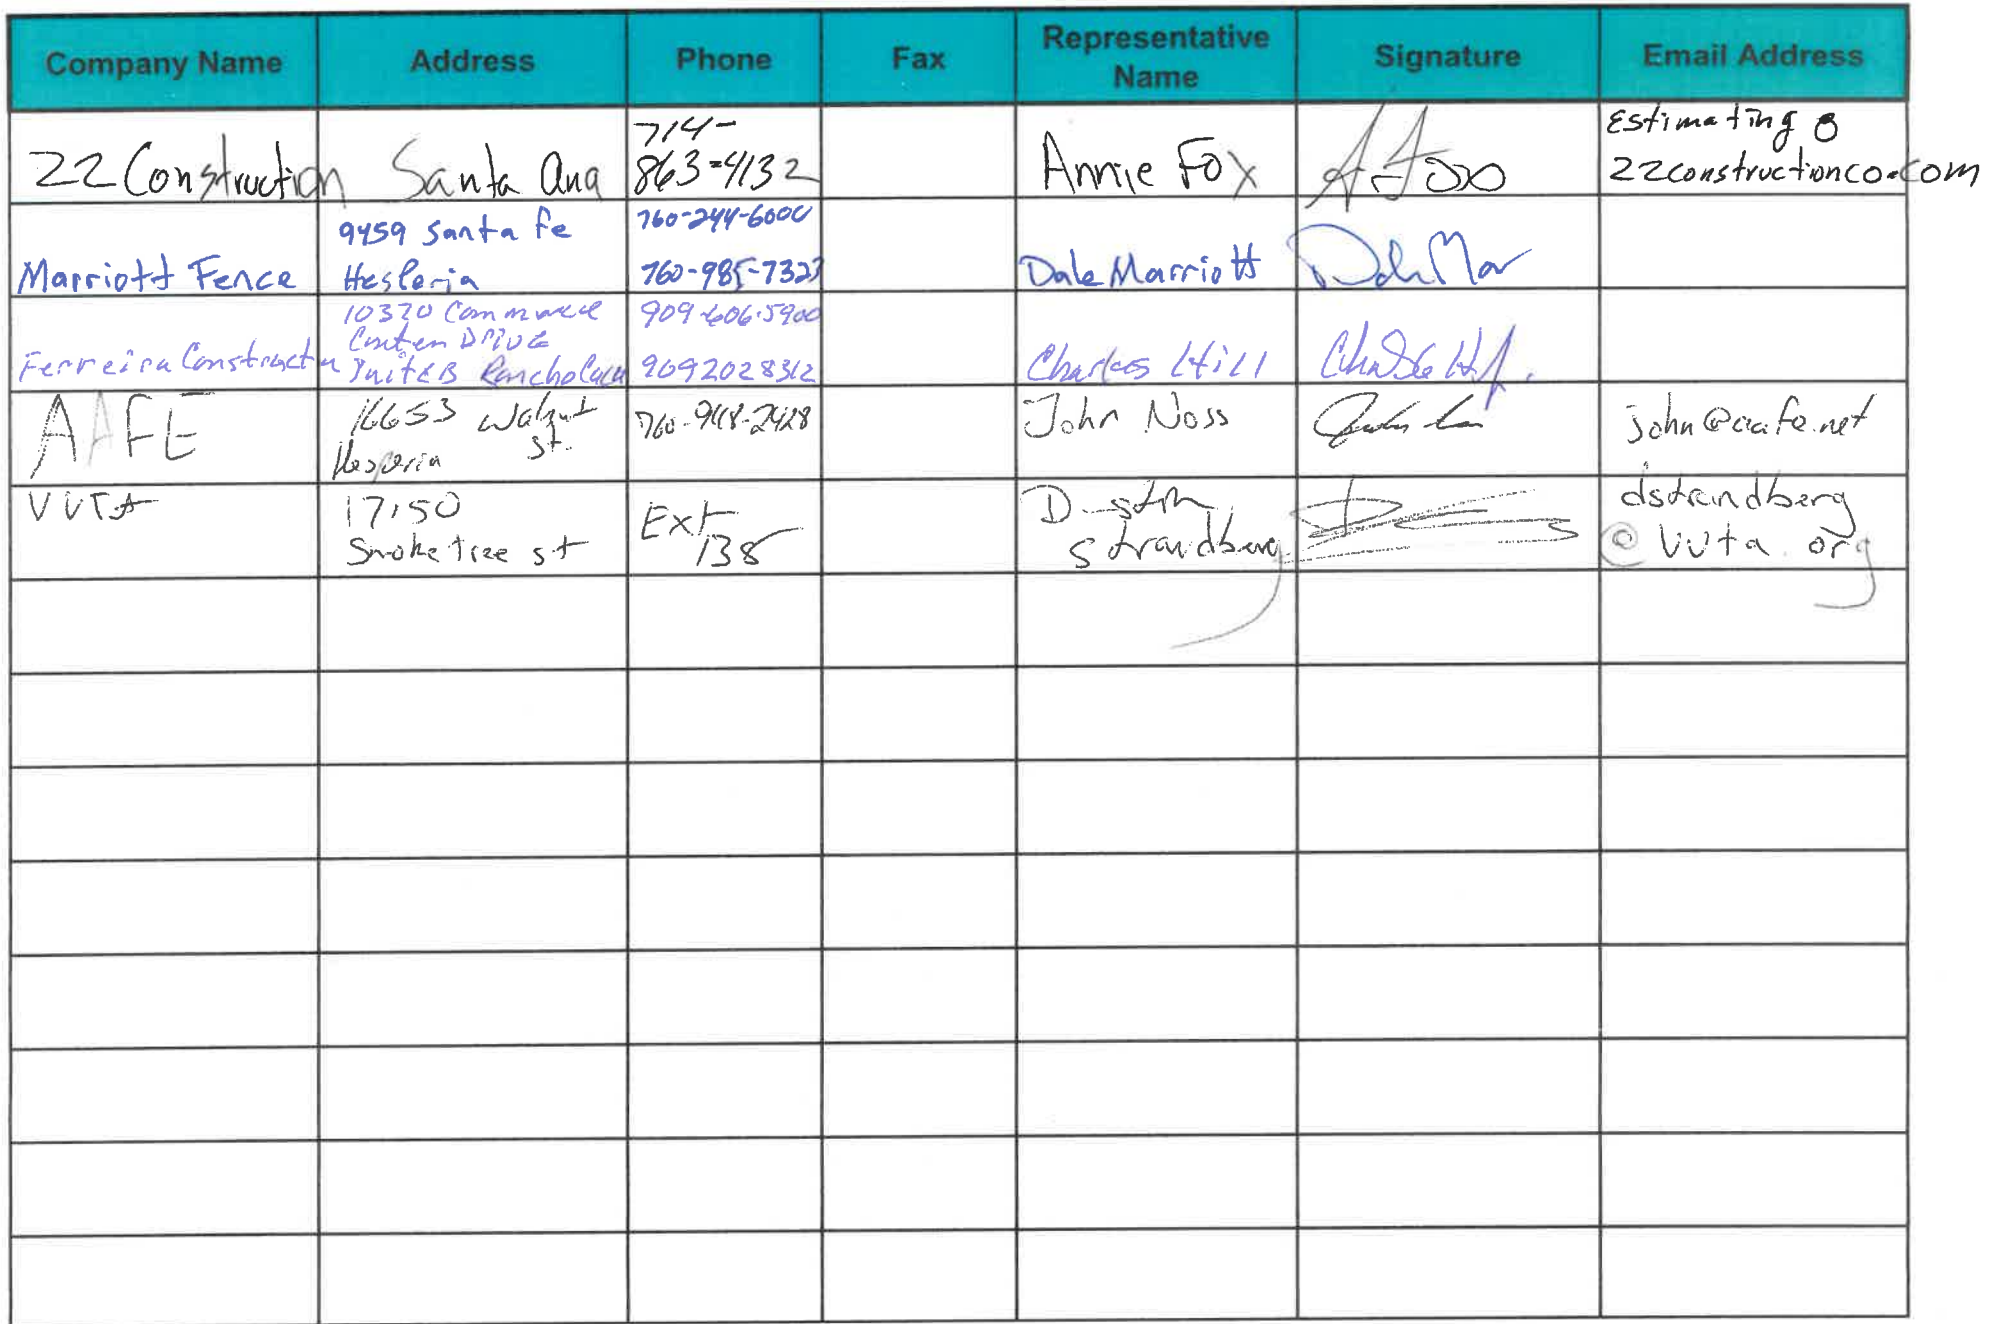 Company Name Address Phone Fax Representative Name Signature Email Address
22 Construction Santa Ana 714-863-4132 Annie Fox Estimating @ 22constructionco.com
Marriott Fence 9459 Santa Fe Hesperia 760-244-6000 760-985-7323 Dale Marriott
Ferreira Construction 10370 Commerce Center Drive Unit B Rancho Cuca 909-606-5900 9092028312 Charles Hill
AAFE 16653 Walnut St. Hesperia 760-948-2428 John Noss john@aafe.net
VVTA 17150 Smoke tree st Ext 138 Dustin Strandberg dstrandberg @vvta.org